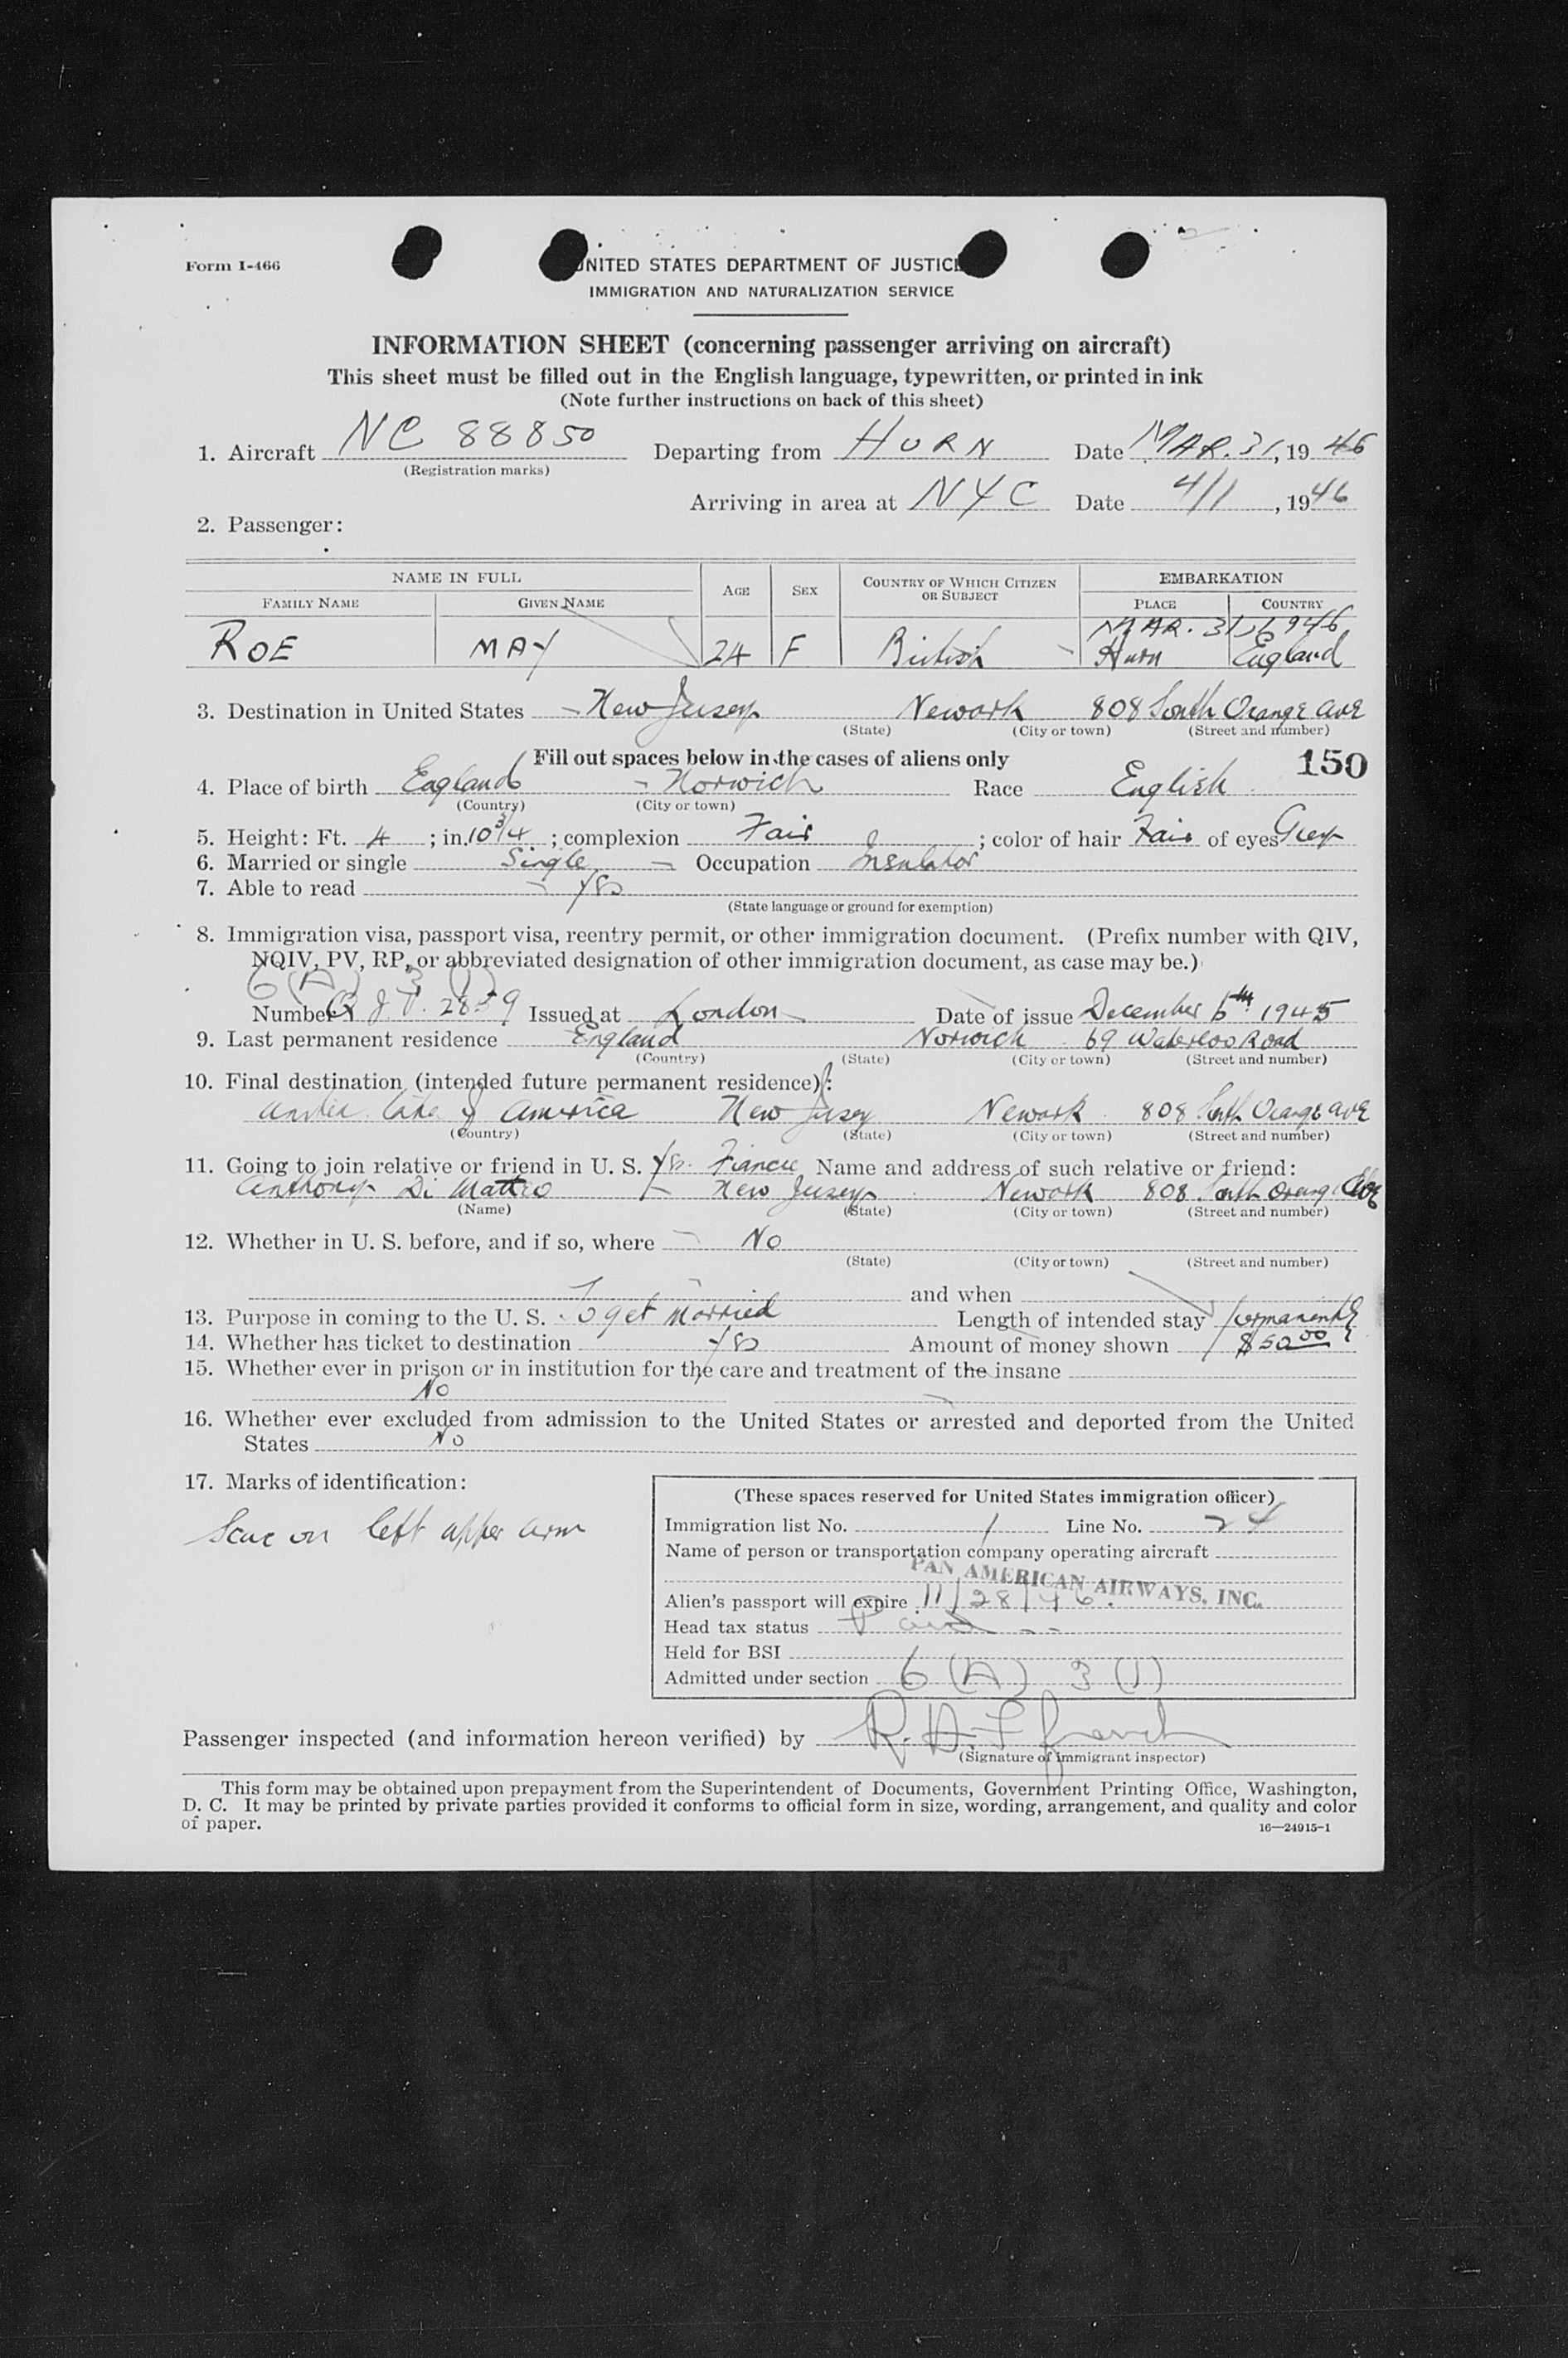 Form I-466
UNITED STATES DEPARTMENT OF JUSTICE
IMMIGRATION AND NATURALIZATION SERVICE
INFORMATION SHEET (concerning passenger arriving on aircraft)
This sheet must be filled out in the English language, typewritten, or printed in ink
(Note further instructions on back of this sheet)
1. Aircraft NC 88850 Departing from HURN Date MAR. 31, 1946
(Registration marks)
Arriving in area at NYC Date 4/1, 1946
2. Passenger:
NAME IN FULL AGE SEX COUNTRY OF WHICH CITIZEN OR SUBJECT EMBARKATION
FAMILY NAME GIVEN NAME PLACE COUNTRY
MAR. 31
ROE MAY 24 F British Hurn England
3. Destination in United States New Jersey Newark 808 South Orange Ave
(State) (City or town) (Street and number)
Fill out spaces below in the cases of aliens only 150
4. Place of birth England Norwich Race English
(Country) (City or town)
5. Height: Ft. 4 ; in. 10 3/4 ; complexion Fair ; color of hair Fair of eyes Grey
6. Married or single Single Occupation Insulator
7. Able to read Yes
(State language or ground for exemption)
8. Immigration visa, passport visa, reentry permit, or other immigration document. (Prefix number with QIV,
NQIV, PV, RP, or abbreviated designation of other immigration document, as case may be.)
6 (A) 3 (1)
Number 2859 Issued at London Date of issue December 5th 1945
9. Last permanent residence England Norwich 69 Waterloo Road
(Country) (State) (City or town) (Street and number)
10. Final destination (intended future permanent residence):
of America New Jersey Newark 808 South Orange Ave
(Country) (State) (City or town) (Street and number)
11. Going to join relative or friend in U. S. Yes. Fiance Name and address of such relative or friend:
Anthony Di Matteo New Jersey Newark 808 South Orange Ave
(Name) (State) (City or town) (Street and number)
12. Whether in U. S. before, and if so, where No
(State) (City or town) (Street and number)
and when
13. Purpose in coming to the U. S. To get married Length of intended stay permanently
14. Whether has ticket to destination Yes Amount of money shown $50.00
15. Whether ever in prison or in institution for the care and treatment of the insane
No
16. Whether ever excluded from admission to the United States or arrested and deported from the United
States No
17. Marks of identification:
Scar on left upper arm
(These spaces reserved for United States immigration officer)
Immigration list No. 1 Line No. 24
Name of person or transportation company operating aircraft
PAN AMERICAN AIRWAYS, INC.
Alien's passport will expire 11/28/46.
Head tax status Paid
Held for BSI
Admitted under section 6 (A) 3 (1)
Passenger inspected (and information hereon verified) by R. H.
(Signature of immigrant inspector)
This form may be obtained upon prepayment from the Superintendent of Documents, Government Printing Office, Washington,
D. C. It may be printed by private parties provided it conforms to official form in size, wording, arrangement, and quality and color
of paper.
16—24915-1